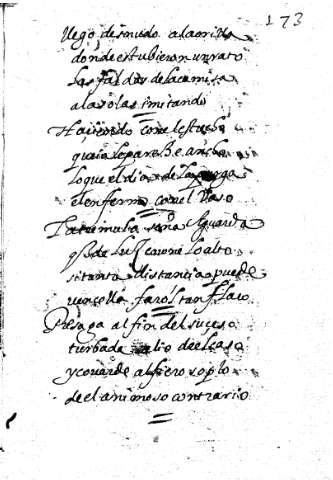 173
llego desnudo a la orilla
donde estubieron un rato
las faldas de la camisa
a las olas imitando
Haçiendo con el estrecho
que ia le pareçe ancho
lo que el dia de la purga
el enfermo con el vaso
La tremula seña Aguarda
q̃ de luz corone lo alto
si tanta distancia puede
vencella farol tan flaco
Presaga al fin del suceso
turbada salio del caso
y covarde al fiero soplo
de el animoso contrario